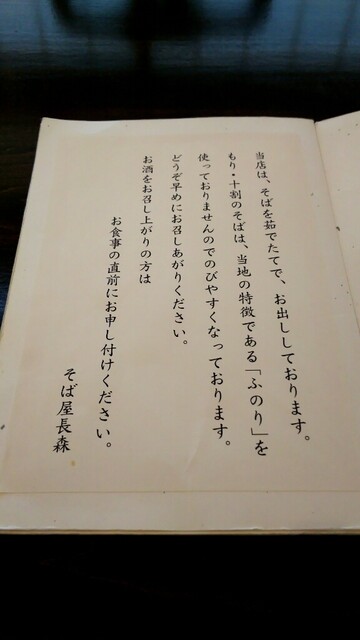 当店は、そばを茹でたてで、お出ししております。
もり・十割のそばは、当地の特徴である「ふのり」を
使っておりませんのでのびやすくなっております。
どうぞ早めにお召しあがりください。
お酒をお召し上がりの方は
お食事の直前にお申し付けください。
そば屋長森